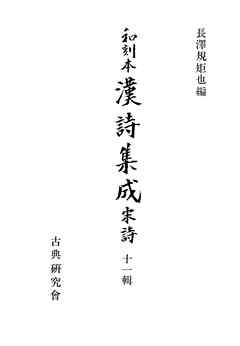 長澤規矩也編
和刻本漢詩集成宋詩 十一輯
古典研究會